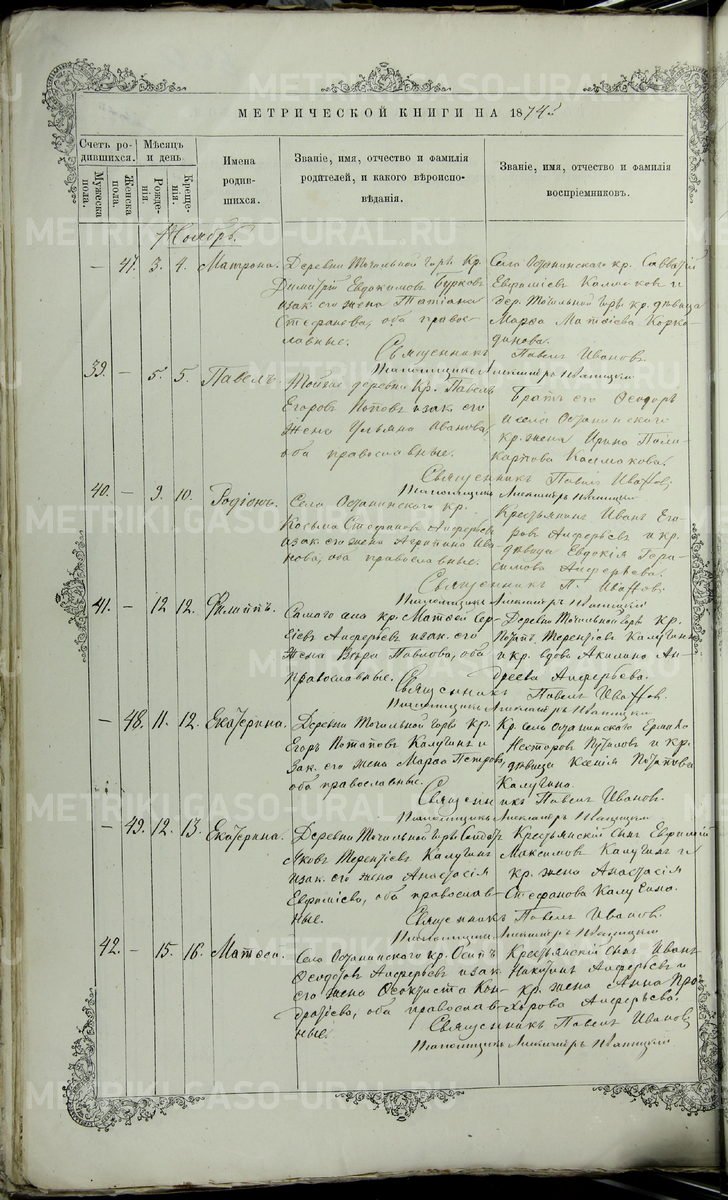 МЕТРИЧЕСКОЙ КНИГИ НА 1874 г.
Счетъ родившихся.
Мужеска пола.
Женска пола.
Мѣсяцъ и день.
Рожденія.
Крещенія.
Имена родившихся.
Званіе, имя, отчество и фамилія родителей, и какого вѣроисповѣданія.
Званіе, имя, отчество и фамилія воспріемниковъ.
Ноябрь.
— 47. 3. 4. Матрона.
Деревни Точильной Горы кр.
Димитрій Евдокимовъ Бурковъ
и зак. его жена Татіана
Стефанова, оба правос-
лавные.
Села Останинскаго кр. Савватій
Евфоміевъ и
дер. Точильной Горы кр. дѣвица
Марѳа Матѳіева Корко-
динова.
Священникъ Павелъ Ивановъ.
39. — 5. 5. Павелъ.
Тойже деревни кр. Павелъ
Егоровъ и зак. его
жена Ульяна Иванова,
оба православные.
Братъ его Ѳеодоръ
и села Останинскаго
кр. жена Ирина Поли-
карпова
Священникъ Павелъ Ивановъ
40. — 9. 10. Родіонъ.
Села Останинскаго кр.
Косьма Стефановъ Алферьевъ
и зак. его жена Агрипина Ива-
нова, оба православные.
Крестьянинъ Иванъ Его-
ровъ Алферьевъ и кр.
дѣвица Евдокія Гера-
симова Алферьева.
Священникъ П. Ивановъ
41. — 12 12. Филиппъ.
Самаго села кр. Матѳей Сер-
гіевъ Алферьевъ и зак. его
жена Вѣра Павлова, оба
православные.
Деревни Точильной Горы кр.
Потапъ Терентіевъ Калугинъ
и кр. вдова Акилина Ан-
дреева Алферьева.
Священникъ Павелъ Ивановъ.
— 48. 11. 12. Екатерина.
Деревни Точильной Горы кр.
Егоръ Потаповъ Калугинъ и
зак. его жена Марѳа Петрова,
оба православные.
Кр. села Останинскаго Ермила
Несторовъ Путиловъ и кр.
дѣвица Ксенія Потапова
Калугина.
Священникъ Павелъ Ивановъ.
— 49. 12. 13. Екатерина.
Деревни Точильной Горы
Яковъ Терентіевъ Калугинъ
и зак. его жена Анастасія
Евфоміева, оба православ-
ные.
Крестьянскій сынъ Евфимій
Максимовъ Калугинъ и
кр. жена Анастасія
Стефанова Калугина.
Священникъ Павелъ Ивановъ.
42. — 15. 16. Матѳей.
Села Останинскаго кр. Осипъ
Ѳеодотовъ Алферьевъ и зак.
его жена Ѳеоктиста Кон-
дратіева, оба православ-
ные.
Крестьянскій сынъ Иванъ
Никитинъ Алферьевъ и
кр. жена Анна Про-
хорова Алферьева.
Священникъ Павелъ Ивановъ
METRIKI.GASO-URAL.RU